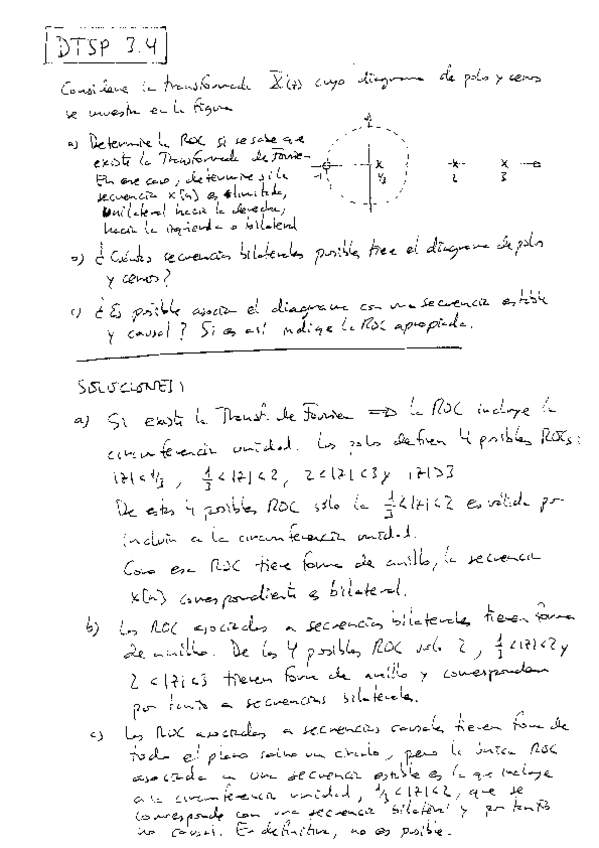 DTSP 3.4
Considere la transformada X(z) cuyo diagrama de polos y ceros
se muestra en la figura
a) Determine la ROC si se sabe que
existe la Transformada de Fourier
En ese caso, determine si la
secuencia x[n] es limitada,
Unilateral hacia la derecha,
hacia la izquierda o bilateral
-1 1/3 2 3
b) ¿Cuántas secuencias bilaterales posibles tiene el diagrama de polos
y ceros?
c) ¿Es posible asociar el diagrama con una secuencia estable
y causal? Si es así indique la ROC apropiada.
SOLUCIONES
a) Si existe la Transf. de Fourier ⇒ la ROC incluye la
circunferencia unidad. Los polos definen 4 posibles ROCs:
|z|<1/3, 1/3<|z|<2, 2<|z|<3 y |z|>3
De estas 4 posibles ROC sólo la 1/3<|z|<2 es válida por
incluir a la circunferencia unidad.
Como esa ROC tiene forma de anillo, la secuencia
x[n] correspondiente es bilateral.
b) Las ROC asociadas a secuencias bilaterales tienen forma
de anillo. De las 4 posibles ROC solo 2, 1/3<|z|<2 y
2<|z|<3 tienen forma de anillo y corresponden
por tanto a secuencias bilaterales.
c) Las ROC asociadas a secuencias causales tienen forma de
todo el plano salvo un círculo, pero la única ROC
asociada a una secuencia estable es la que incluye
a la circunferencia unidad, 1/3<|z|<2, que se
corresponde con una secuencia bilateral y por tanto
no causal. En definitiva, no es posible.